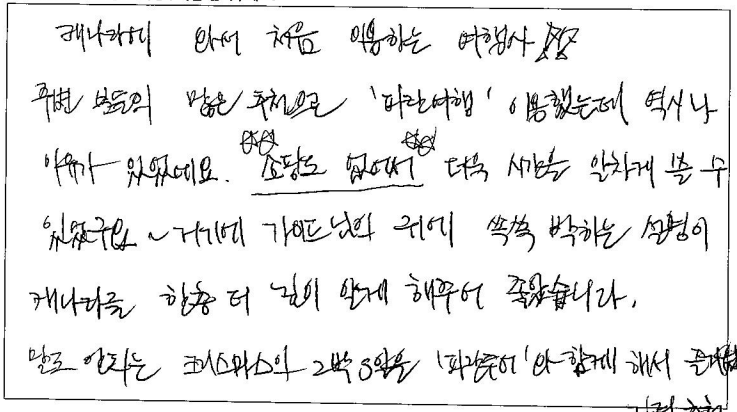 캐나다에 와서 처음 이용하는 여행사
주변 분들의 많은 추천으로 '파란여행' 이용했는데 역시나
이유가 있었네요. 쇼핑도 없어서 더욱 시간을 알차게 쓸 수
있었구요~ 거기에 가이드님의 귀에 쏙쏙 박히는 설명이
캐나다를 한층 더 깊이 알게 해주어 좋았습니다.
말도 안되는 크리스마스의 2박3일을 '파란투어'와 함께 해서